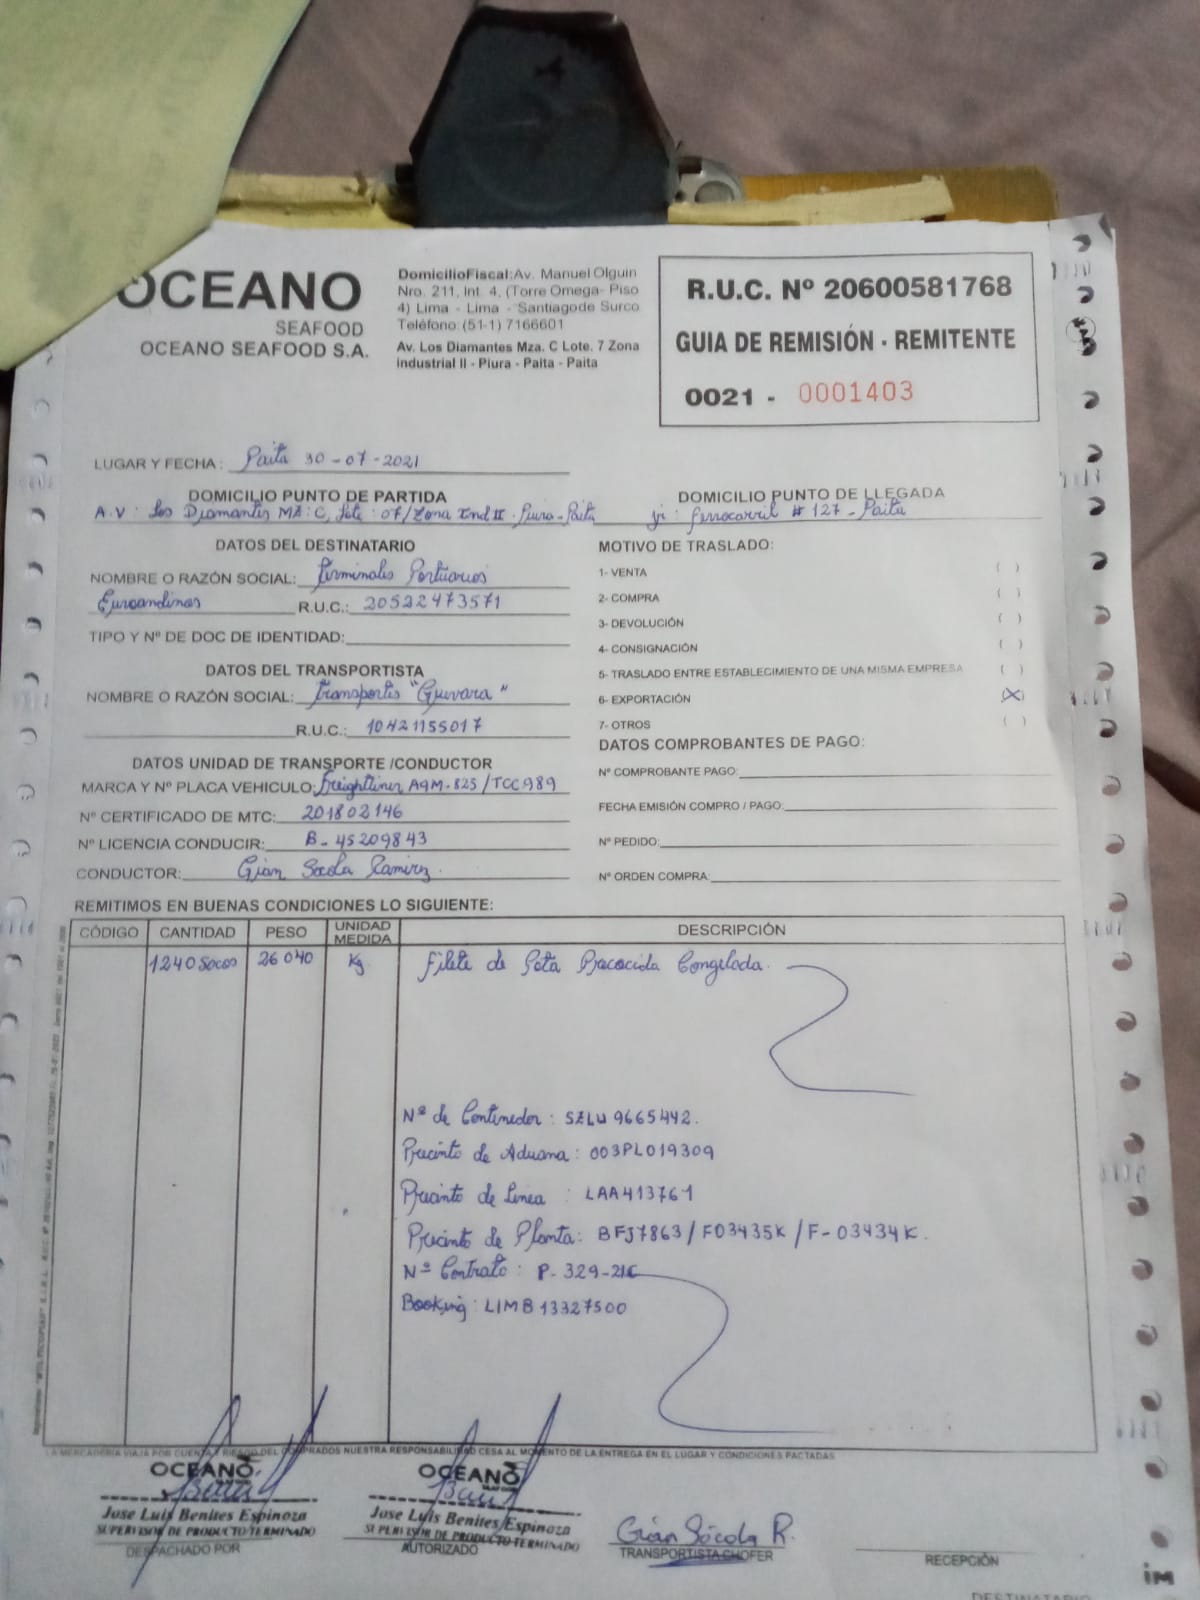 OCEANO
SEAFOOD
OCEANO SEAFOOD S.A.
DomicilioFiscal:Av. Manuel Olguin
Nro. 211, Int. 4, (Torre Omega- Piso
4) Lima - Lima - Santiagode Surco
Teléfono:(51-1) 7166601
Av. Los Diamantes Mza. C Lote. 7 Zona
Industrial II - Piura - Paita - Paita
R.U.C. Nº 20600581768
GUIA DE REMISIÓN - REMITENTE
0021 - 0001403
LUGAR Y FECHA : Paita 30-07-2021
DOMICILIO PUNTO DE PARTIDA
A.V : Los Diamantes MZ: C, Lote : 07/Zona Ind II - Piura-Paita
DOMICILIO PUNTO DE LLEGADA
jr: Ferrocarril # 127 - Paita
DATOS DEL DESTINATARIO
NOMBRE O RAZÓN SOCIAL: Terminales Portuarios
Euroandinos R.U.C.: 20522473571
TIPO Y Nº DE DOC DE IDENTIDAD:
DATOS DEL TRANSPORTISTA
NOMBRE O RAZÓN SOCIAL: Transportes "Guevara"
R.U.C.: 10421155017
DATOS UNIDAD DE TRANSPORTE /CONDUCTOR
MARCA Y Nº PLACA VEHICULO: Freightliner A9M-825/TCC989
Nº CERTIFICADO DE MTC: 201802146
Nº LICENCIA CONDUCIR: B-45209843
CONDUCTOR: Gian Socola Ramirez
MOTIVO DE TRASLADO:
1- VENTA ( )
2- COMPRA ( )
3- DEVOLUCIÓN ( )
4- CONSIGNACIÓN ( )
5- TRASLADO ENTRE ESTABLECIMIENTO DE UNA MISMA EMPRESA ( )
6- EXPORTACIÓN (X)
7- OTROS ( )
DATOS COMPROBANTES DE PAGO:
Nº COMPROBANTE PAGO:
FECHA EMISIÓN COMPRO / PAGO:
Nº PEDIDO:
Nº ORDEN COMPRA:
REMITIMOS EN BUENAS CONDICIONES LO SIGUIENTE:
CÓDIGO CANTIDAD PESO UNIDAD MEDIDA DESCRIPCIÓN
1240 Sacos 26 040 Kg Filete de Pota Precocida Congelada.
Nº de Contenedor : SZLU 9665442.
Precinto de Aduana : 003PL019309
Precinto de Linea : LAA413761
Precinto de Planta: BFJ7863/F03435K/F-03434K.
Nº Contrato : P-329-21C
Booking : LIMB13327500
LA MERCADERÍA VIAJA POR CUENTA Y RIESGO DEL COMPRADOS NUESTRA RESPONSABILIDAD CESA AL MOMENTO DE LA ENTREGA EN EL LUGAR Y CONDICIONES PACTADAS
OCEANO
Jose Luis Benites Espinoza
SUPERVISOR DE PRODUCTO TERMINADO
DESPACHADO POR
OCEANO
Jose Luis Benites Espinoza
SUPERVISOR DE PRODUCTO TERMINADO
AUTORIZADO
Gian Sócola R.
TRANSPORTISTA CHOFER
RECEPCIÓN
DESTINATARIO